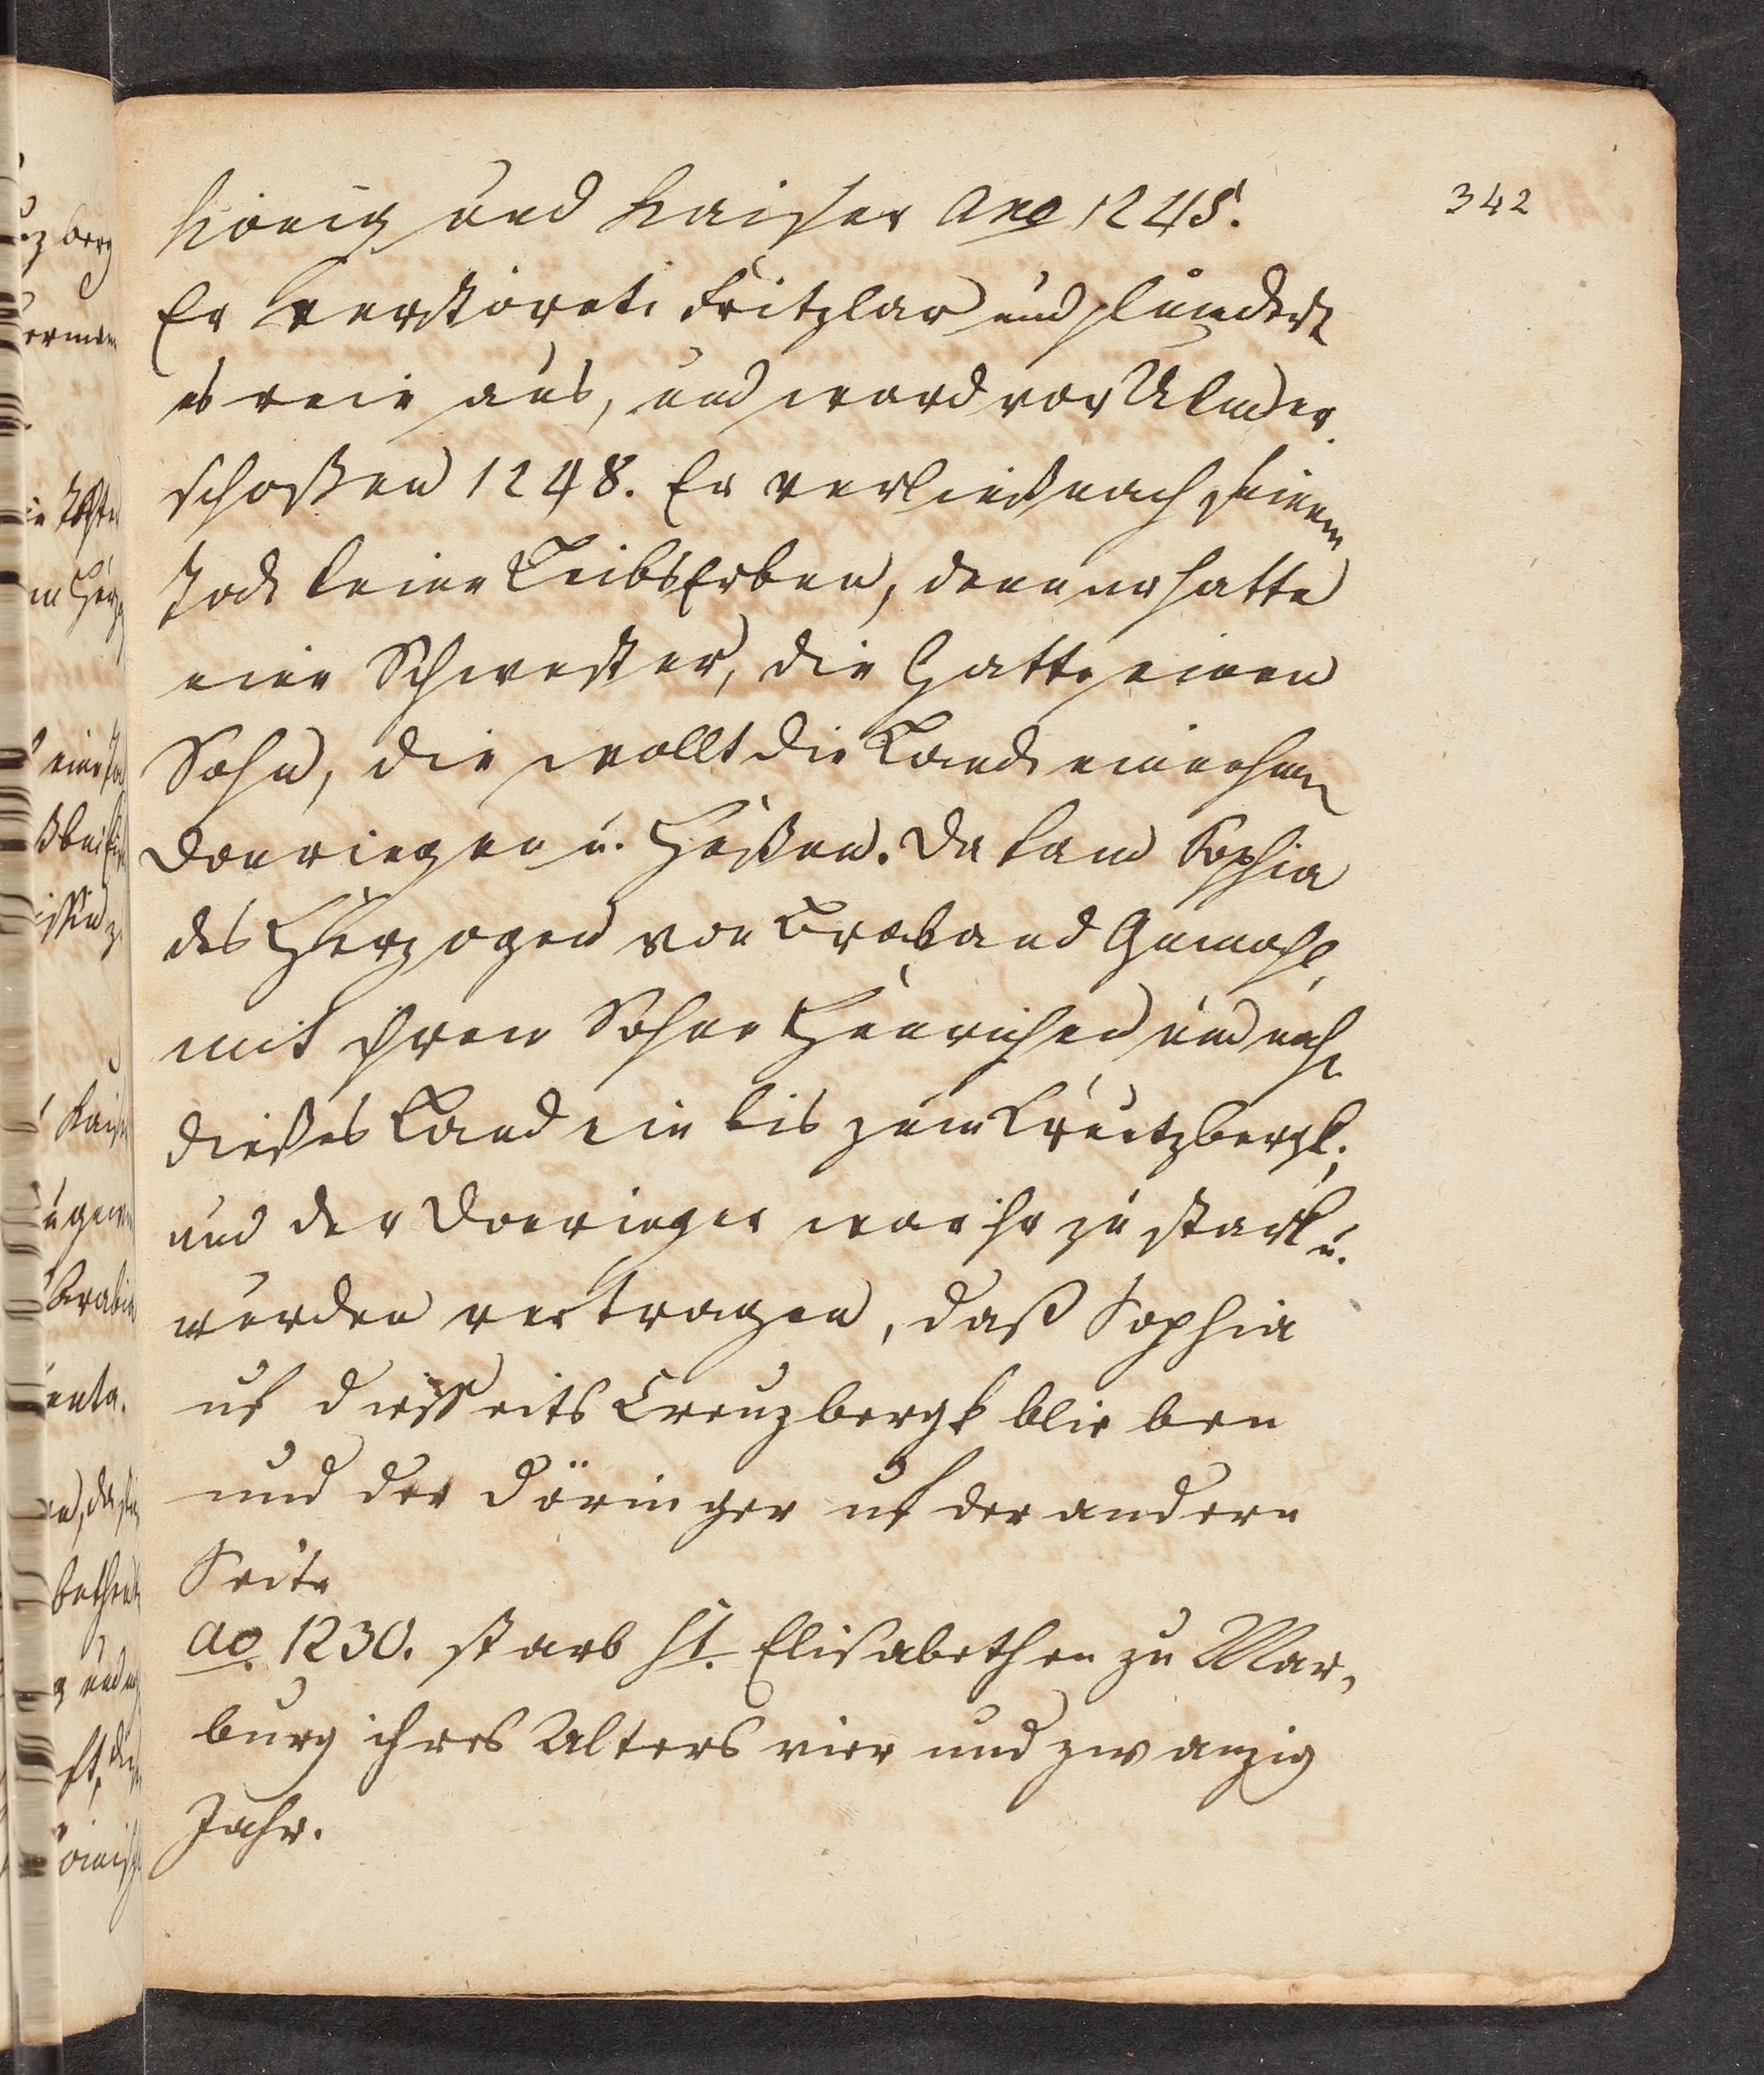 342
König und Kaiser Ano 1245.
Er verstörete Fritzlar und plündert
es rein aus, und ward vor Ulm er
schoßen 1248. Er verließ nach seinem
Tode keine LeibsErben, denn er hatte
eine Schwester, die hatte einen
Sohn, die wollt die Lande einnehmen
Doeringen u. Heßen. Da kam Sophia
des Herzogen von Braband Gemahl,
mit ihren Sohne Henrichen und nahm
dießes Land ein bis zum Creutzbergk,
und der Doeringer war ihr zu stark u.
wurden vertragen, daß Sophia
uf disseits Creuzbergk blieben
und der Döringer uf der andern
Seite
ao 1230. starb St. Elisabethen zu Mar,
burg ihres Alters vier und zwanzig
Jahr.